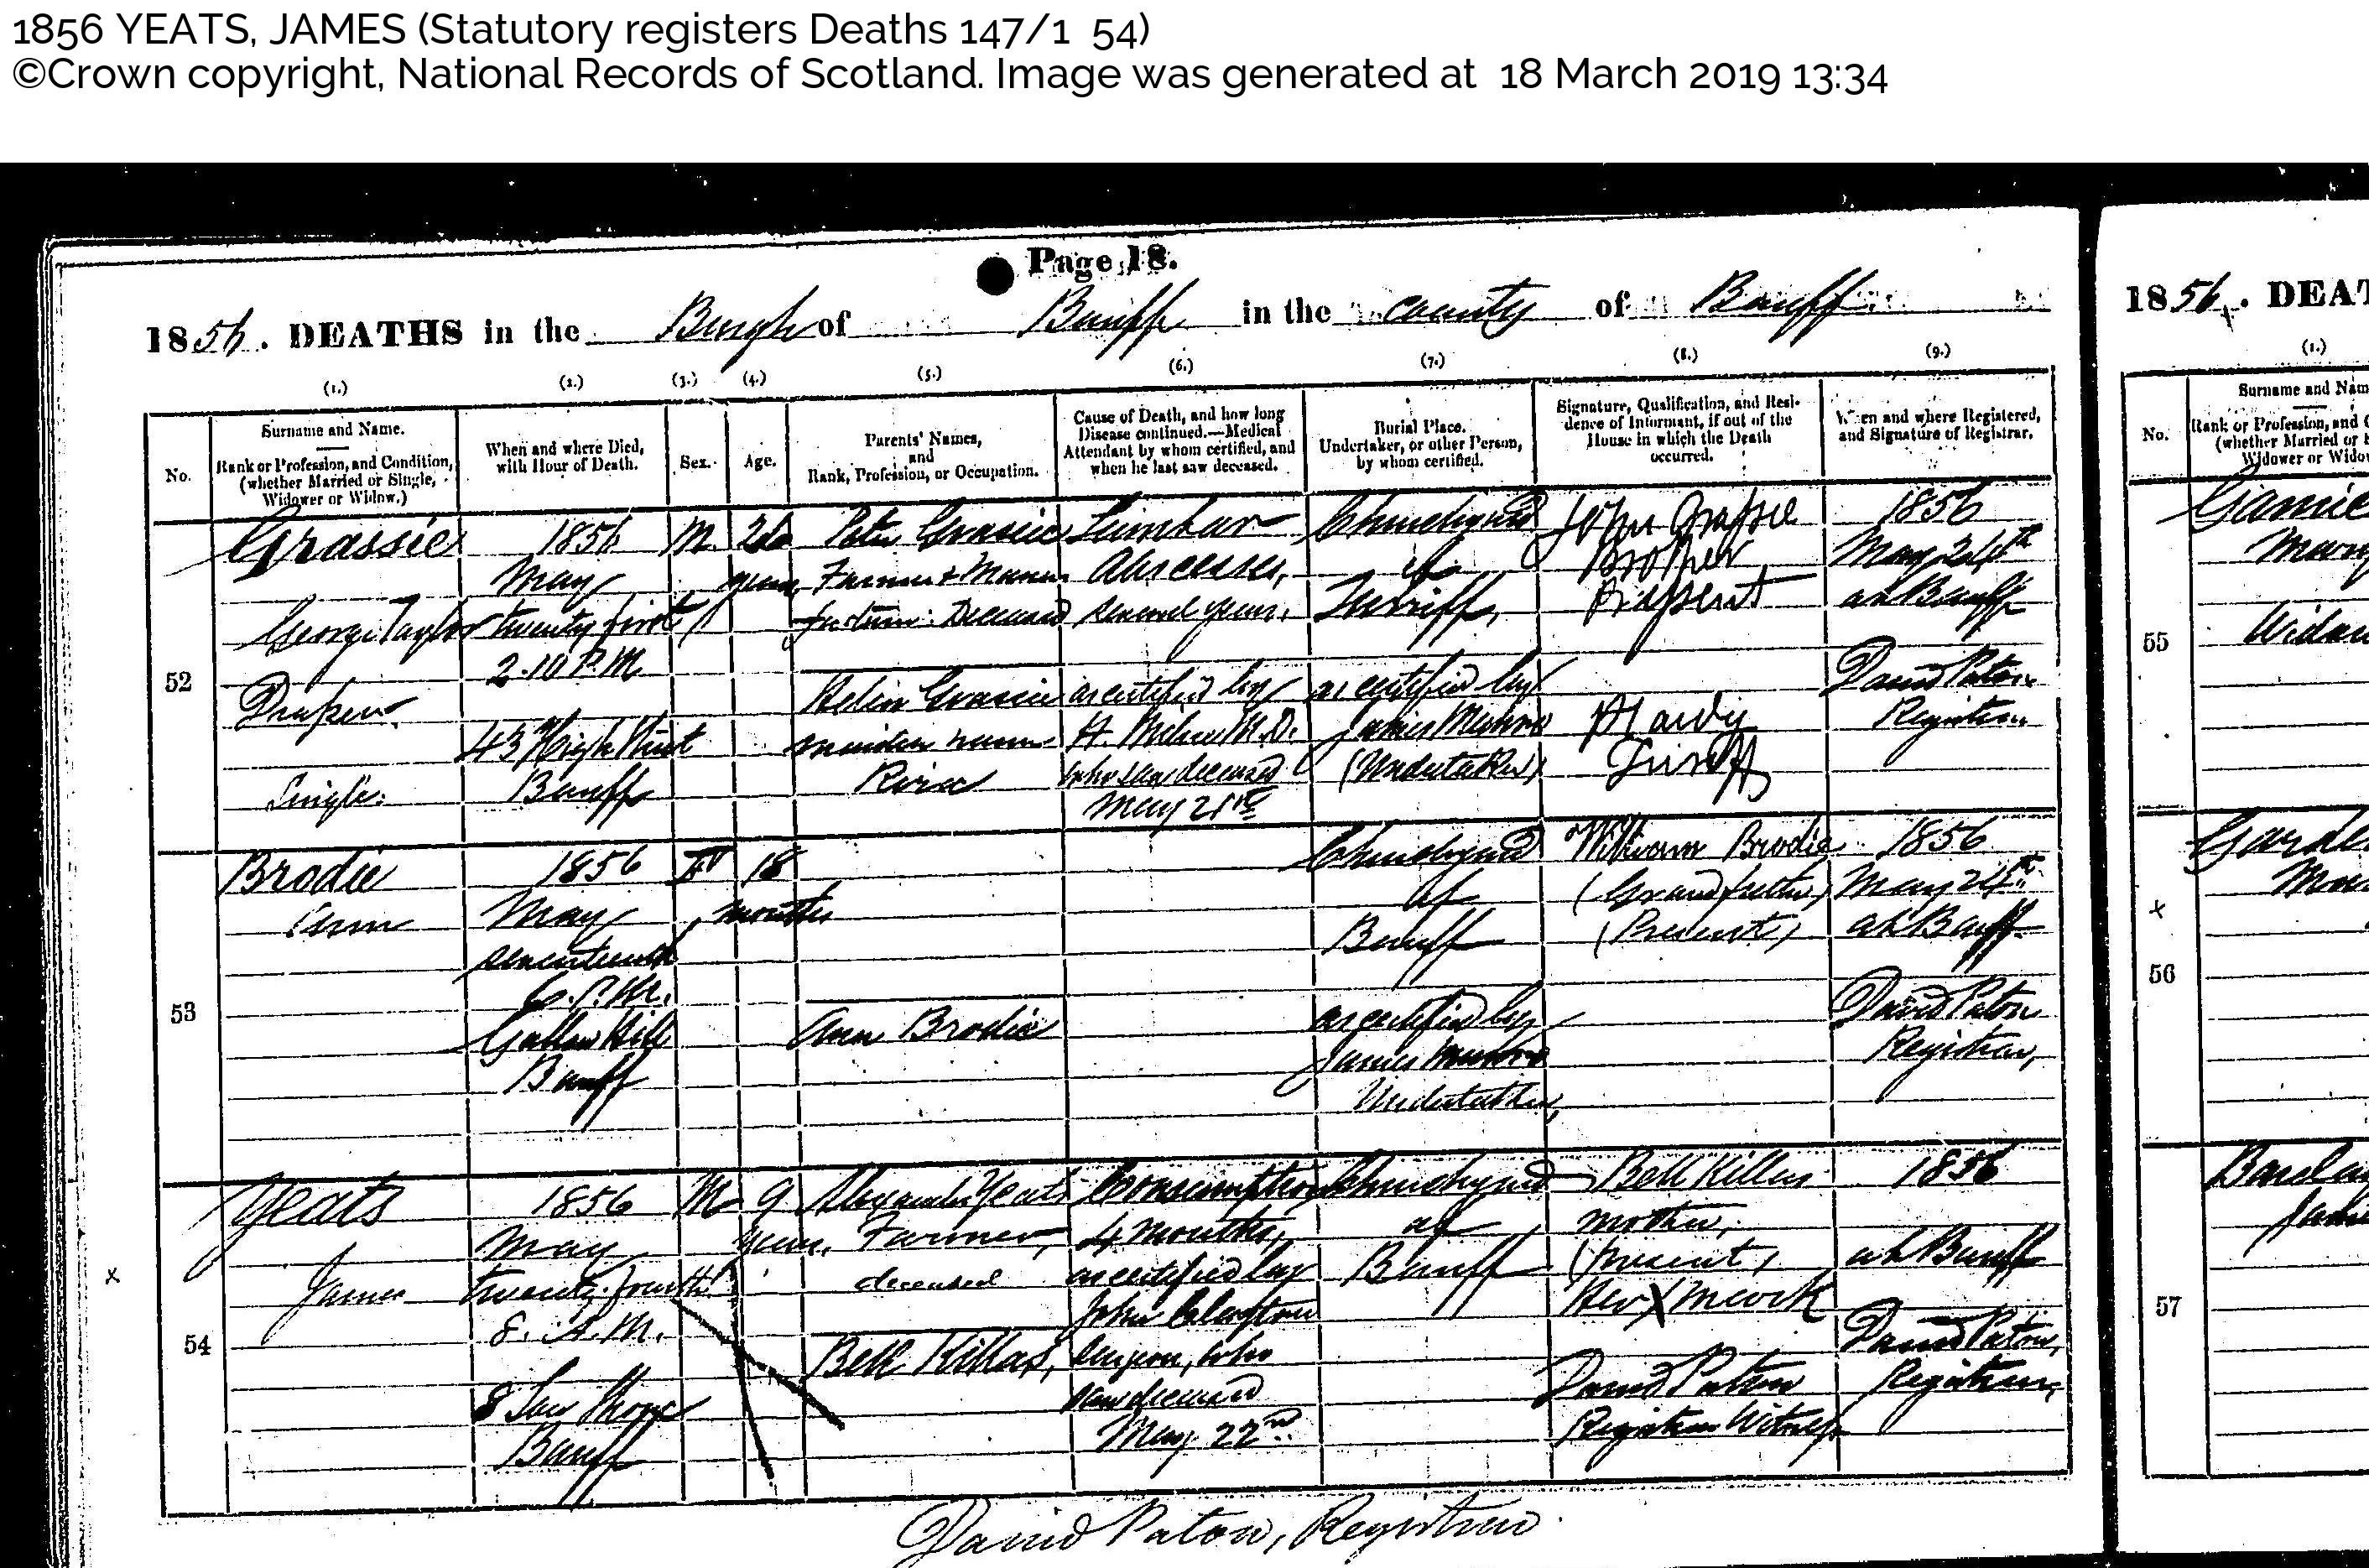 1856 YEATS, JAMES (Statutory registers Deaths 147/1 54)
©Crown copyright, National Records of Scotland. Image was generated at 18 March 2019 13:34
Page 18.
1856. DEATHS in the Burgh of Banff in the County of Banff.
(1.) (2.) (3.) (4.) (5.) (6.) (7.) (8.) (9.)
No.
Surname and Name.
Rank or Profession, and Condition,
(whether Married or Single,
Widower or Widow.)
When and where Died,
with Hour of Death.
Sex.
Age.
Parents' Names,
and
Rank, Profession, or Occupation.
Cause of Death, and how long
Disease continued.—Medical
Attendant by whom certified, and
when he last saw deceased.
Burial Place.
Undertaker, or other Person,
by whom certified.
Signature, Qualification, and Resi-
dence of Informant, if out of the
House in which the Death
occurred.
When and where Registered,
and Signature of Registrar.
52
Grassie
George Taylor
Draper
Single.
1856
May
twenty first
2.10 P.M.
43 High Street
Banff
M
26
years,
Peter Grassie
Farmer &
Deceased
Helen Grassie
maiden name
Lumbar
Abscesses,
several years.
as certified by
M.D.
who saw deceased
May 21st
Churchyard
of
Turriff,
as certified by
James Munro
(Undertaker)
John Grassie
Brother
Present
Turriff
1856
May 24th
at Banff
David Paton
Registrar
53
Brodie
Ann
1856
May
seventeenth
6. P.M.
Gallow Hill
Banff
F
18
months
Ann Brodie
Churchyard
of
Banff
as certified by
James Munro
Undertaker,
William Brodie
(Grandfather)
(Present)
1856
May 24th
at Banff
David Paton
Registrar,
54
Yeats
James
1856
May
twenty-fourth
8. A.M.
8 Low Shore
Banff
M
9
years.
Alexander Yeats
Farmer,
deceased
Bell Killas,
Consumption
4 months,
as certified by
John
Surgeon, who
saw deceased
May 22nd
Churchyard
of
Banff
Bell Killas
mother,
(present)
Her X Mark
David Paton
Registrar Witness
1856
at Banff
David Paton,
Registrar,
David Paton, Registrar.
1856. DEAT
(1.)
No.
Surname and Nam
Rank or Profession, and C
(whether Married or
Widower or Widow
55
Widow
56
57